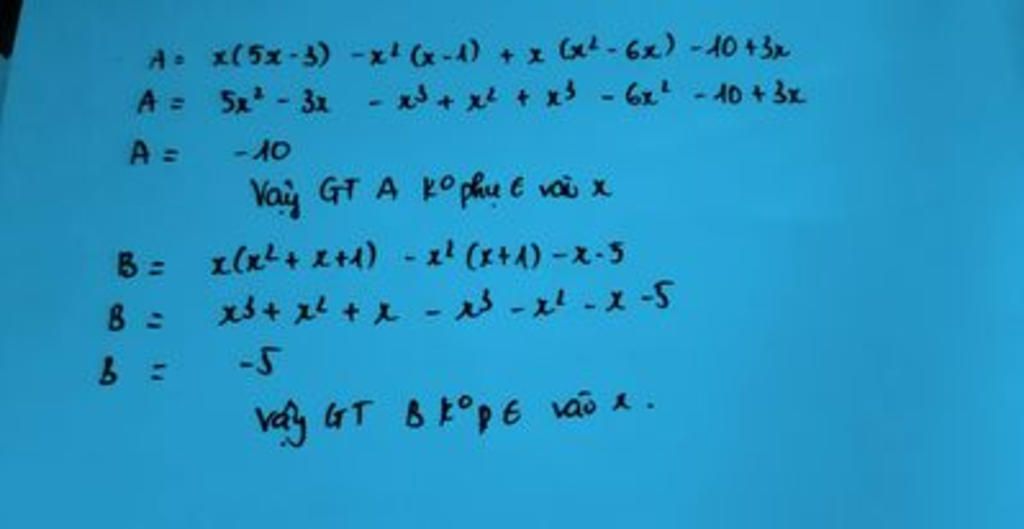 A = x(5x - 3) - x²(x - 1) + x(x² - 6x) - 10 + 3x
A = 5x² - 3x - x³ + x² + x³ - 6x² - 10 + 3x
A = -10
Vậy GT A k⁰ phụ ∈ vào x
B = x(x² + x + 1) - x²(x + 1) - x - 5
B = x³ + x² + x - x³ - x² - x - 5
B = -5
Vậy GT B k⁰ p ∈ vào x.